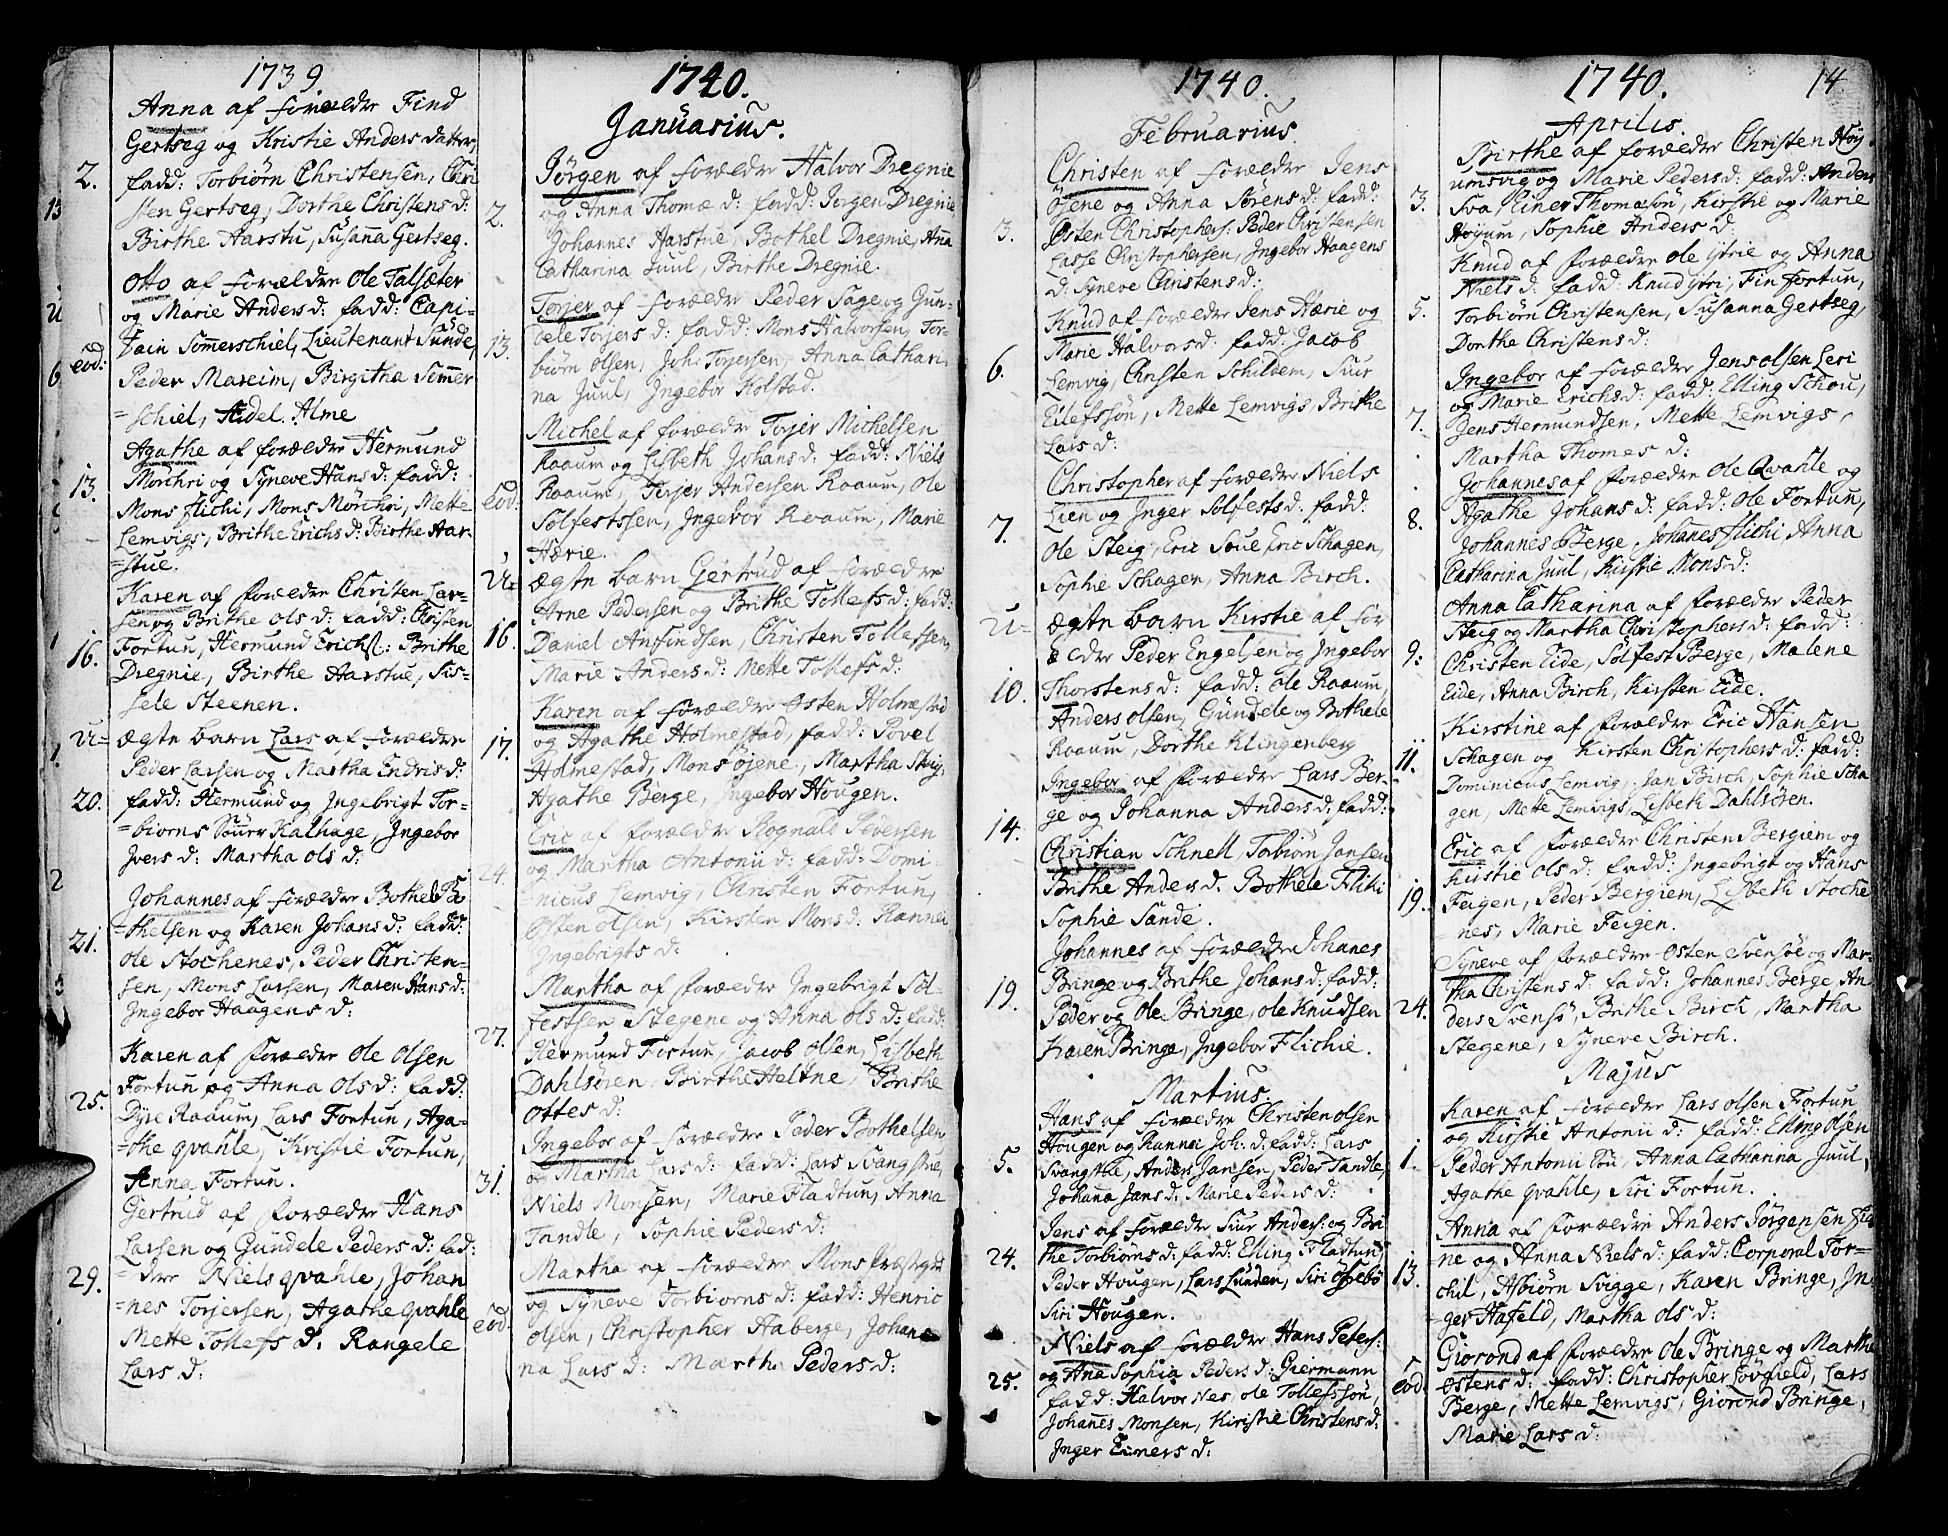 1739.
Anna af forældre Find
Gertseg og Kristie Anders datter,
2. fadd: Torbiørn Christensen, Chri
sten Gertseg, Dorthe Christens d:
Birthe Aarstu, Susanna Gertseg.
Otto af forældre Ole Talsæter
og Marie Anders d: fadd: Capi-
eod: tain Sommerschiel, Lieutenant Sunde,
Peder Mareim, Birgitha Sommer
=schiel, Ædel Alme
Agathe af forældre Hermund
Mørchri og Syneve Hans d: fadd:
13. Mons flichi, Mons Mørchri, Mette
Lemvigs, Brithe Erichs d: Birthe Aar
=stue.
Karen af forældre Christen Lar-
sen og Brithe Ols d: fadd: Christen
16. Fortun, Hermund Erichs: Brithe
Dregnie, Birthe Aarstue, Sis-
sele Steenen.
U= ægte barn Lars af forældre
Peder Larsen og Martha Endris d:
20. fadd: Hermund og Ingebrigt Tor-
=biorns Sønner Kalhage, Ingebor
Ivers d: Martha Ols d:
Johannes af forældre Bothel Bo
=thelsen og Karen Johans d: fadd:
21. Ole Stochenes, Peder Christen-
sen, Mons Larsen, Maren Hans d:
Ingebor Haagens d:
Karen af forældre Ole Olsen
Fortun og Anna Ols d: fadd:
25. Dyre Raaum, Lars Fortun, Aga-
=the qvahle, Kristie Fortun,
Anna Fortun.
Gertrud af forældre Hans
Larsen og Gundele Peders d: fad:
29. =dre Niels qvahle, Johan
=nes Torjersen, Agathe qvahle
Mette Tollefs d: Rangele
Lars d:
1740.
Januarius.
Jørgen af forældre Halvor Dregnie
2. og Anna Thomæ d: fadd: Jørgen Dregnie
Johannes Aarstue, Bothel Dregnie, Anna
Catharina Juul, Birthe Dregnie.
Torjer af forældre Peder Sage og Gun-
13. dele Torjers d: fadd: Mons Halvorsen, Tor-
biørn Olsen, Joh: Torjersen, Anna Cathari-
na Juul, Ingebor Kolstad.
Michel af forældre Torjer Michelsen
Raaum og Lisbeth Johans d: fadd: Niels
eod: Raaum, Torjer Andersen Raaum, Ole
Solfestssen, Ingebor Roaum, Marie
Hærie.
U= ægte barn Gertrud af forældre
Arne Pedersen og Brithe Tollefs d: fadd:
16. Daniel Anfindsen, Christen Tollefsen,
Marie Anders d: Mette Tollefs d:
Karen af forældre Østen Holmestad
17. og Agathe Holmestad, fadd: Povel
Holmestad, Mons Øjene, Martha Steig,
Agathe Berge, Ingebor Hougen.
Eric af forældre Rognald Pedersen
24. og Martha Antonii d: fadd: Domi
=nicus Lemvig, Christen Fortun,
Østen Olsen, Kirsten Mons d: Rannei
Ingebrigts d:
Martha af forældre Ingebrigt Sol-
27. festsen Stegene og Anna Ols d: fadd:
Hermund Fortun, Jacob Olsen, Lisbeth
Dahlsøren, Birthe Heltne, Brithe
Ottes d:
Ingebor af forældre Peder Bothelsen
31. og Martha Lars d: fadd: Lars Svangstue,
Niels Monsen, Marie Fladtun, Anna
Tandle, Sophie Peders d:
Martha af forældre Mons
eod. og Syneve Torbiorns d: fadd: Henric
Olsen, Christopher Aaberge, Johan
na Lars d: Marth: Peders d:
1740.
Februarius.
Christen af forældre Jens
Øjene og Anna Sørens d: fadd:
3. Østen Christophers: Peder Christensen
Lasse Christophersen, Ingebor Haagens
d: Syneve Christens d:
Knud af forældre Jens Hærie og
Marie Halvors d: fadd: Jacob
6. Lemvig, Christen Schildem, Siur
Eilefssøn, Mette Lemvigs, Brithe
Lars d:
Christopher af forældre Niels
Lien og Inger Solfests d: fadd:
7. Ole Steig, Eric Soue, Eric Schagen,
Sophie Schagen, Anna Birch.
U= ægte barn Kirstie af for
ældre Peder Engelsen og Ingebor
10. Thorstens d: fadd: Ole Raaum,
Anders Olsen, Gundele og Bothele
Raaum, Dorthe Klingenberg
Ingebor af forældre Lars Ber-
ge og Johanna Anders d: fadd:
14. Christian Schnell, Torbiørn Jansen
Brithe Anders d. Bothele Flihi
Sophie Sande.
Johannes af forældre Johanes
Bringe og Brithe Johans d: fadd:
19. Peder og Ole Bringe, Ole Knudsen
Karen Bringe, Ingebor Flichie.
Martius.
Hans af forældre Christen Olsen
Hougen og Rannei Joh: d: fadd: Lars
5. Svangthe, Anders Jansen, Peder Tandle,
Johana Jans d: Marie Peders d:
Jens af forældre Siur Anders: og Bri
24. the Torbiørns d: fadd: Elling Fladtun
Peder Hougen, Lars Lunden, Siri Øssebø
Siri Hougen.
Niels af forældre Hans Peters:
25. og Ana Sophia Peders d: Giermann
fadd: Halvor Nes, Ole Tollefssøn,
Johanes Monsen, Kirstie Christens d:
Inger Einers d:
1740. 14.
Aprilis.
Birthe af forældre Christen Høy
umsvig og Marie Peders d: fadd: Anders
3. Sva, Einer Thomæsøn, Kirstie og Marie
Høyum, Sophie Anders d:
Knud af forældre Ole Ytrie og Anna
Niels d: fadd: Knud Ytri, Fin Fortun,
5. Torbiørn Christensen, Susanna Gertseg,
Dorthe Christens d:
Ingebor af forældre Jens Olsen Leri
og Marie Erichs d: fadd: Elling Schou,
7. Jens Hermundsen, Mette Lemvigs,
Martha Thomes d:
Johannes af forældre Ole Qvahle og
Agathe Johans d: fadd: Ole Fortun,
8. Johannes Berge, Johanes flichi, Anna
Catharina Juul, Kirstie Mons d:
Anna Catharina af forældre Peder
Steig og Martha Christophers d: fadd:
9: Christen Eide, Solfest Berge, Malene
Eide, Anna Birch, Kirsten Eide.
Kirstine af forældre Eric Hansen
11. Schagen og Kirsten Christophers d: fadd:
Dominicus Lemvig, Jan Birch, Sophie Scha
gen, Mette Lemvigs, Lisbeth Dahlsøren.
Eric af forældre Christen Bergiem og
Kristie Ols d: fadd: Ingebrigt og Hans
19. Feigen, Peder Bergiem, Lisbeth Stoche
nes, Marie Feigen.
Syneve af forældre Østen Svensøe og Mar-
tha Christens d: fadd: Johannes Berge, An
24. ders Svensø, Brithe Birch, Martha
Stegene, Syneve Birch.
Majus
Karen af forældre Lars Olsen Fortun
og Kirstie Antonii d: fadd: Elling Olsen
1. Peder Antonii Søn, Anna Catharina Juul,
Agathe qvahle, Siri Fortun.
Anna af forældre Anders Jørgensen
ne og Anna Niels d: fadd: Corporal Tor-
13. chil, Asbiørn Svigge, Karen Bringe, In
ger Hafeld, Martha Ols d:
Giorond af forældre Ole Bringe og Marthe
eod. Østens d: fadd: Christopher Løvfield, Lars
Berge, Mette Lemvigs, Giorond Bringe,
Marie Lars d: